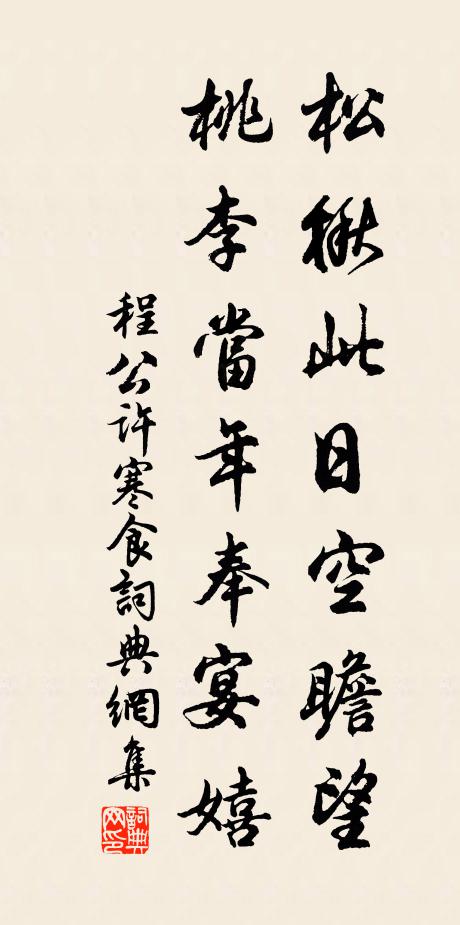 松楸此日空瞻望
桃李當年奉宴嬉
程公許寒食詞典網集
詞典網印